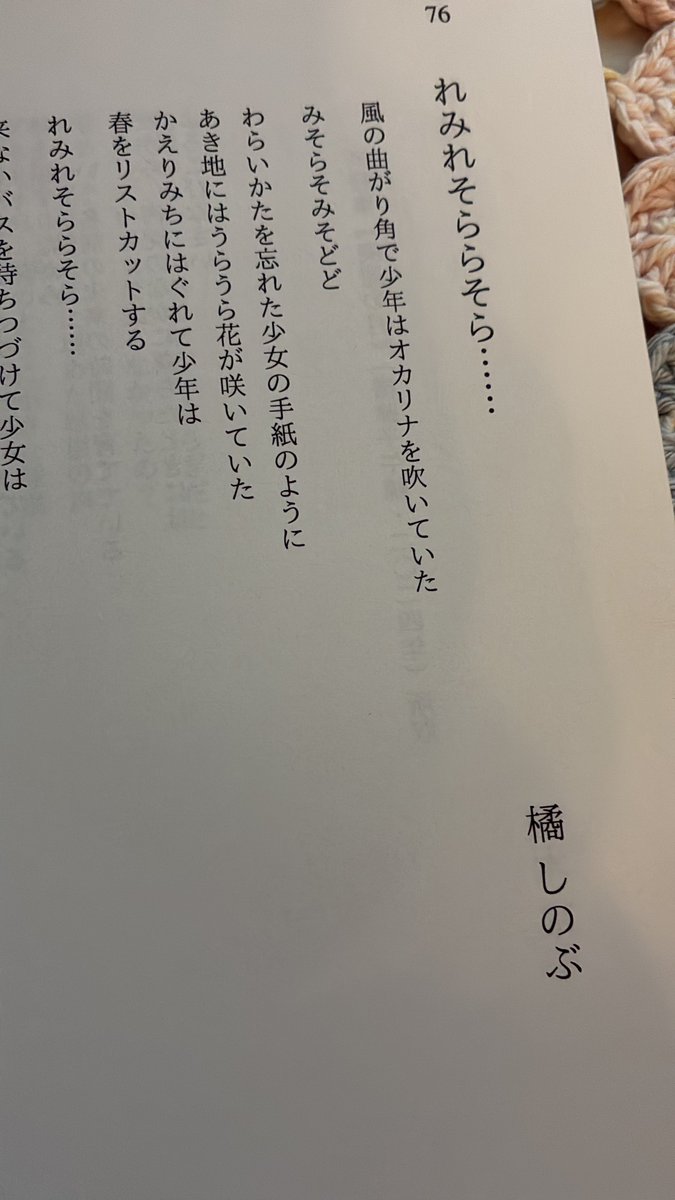 76
れみれそららそら……
橘 しのぶ
風の曲がり角で少年はオカリナを吹いていた
みそらそみそどど
わらいかたを忘れた少女の手紙のように
あき地にはうらうら花が咲いていた
かえりみちにはぐれて少年は
春をリストカットする
れみれそららそら……
来ないバスを待ちつづけて少女は